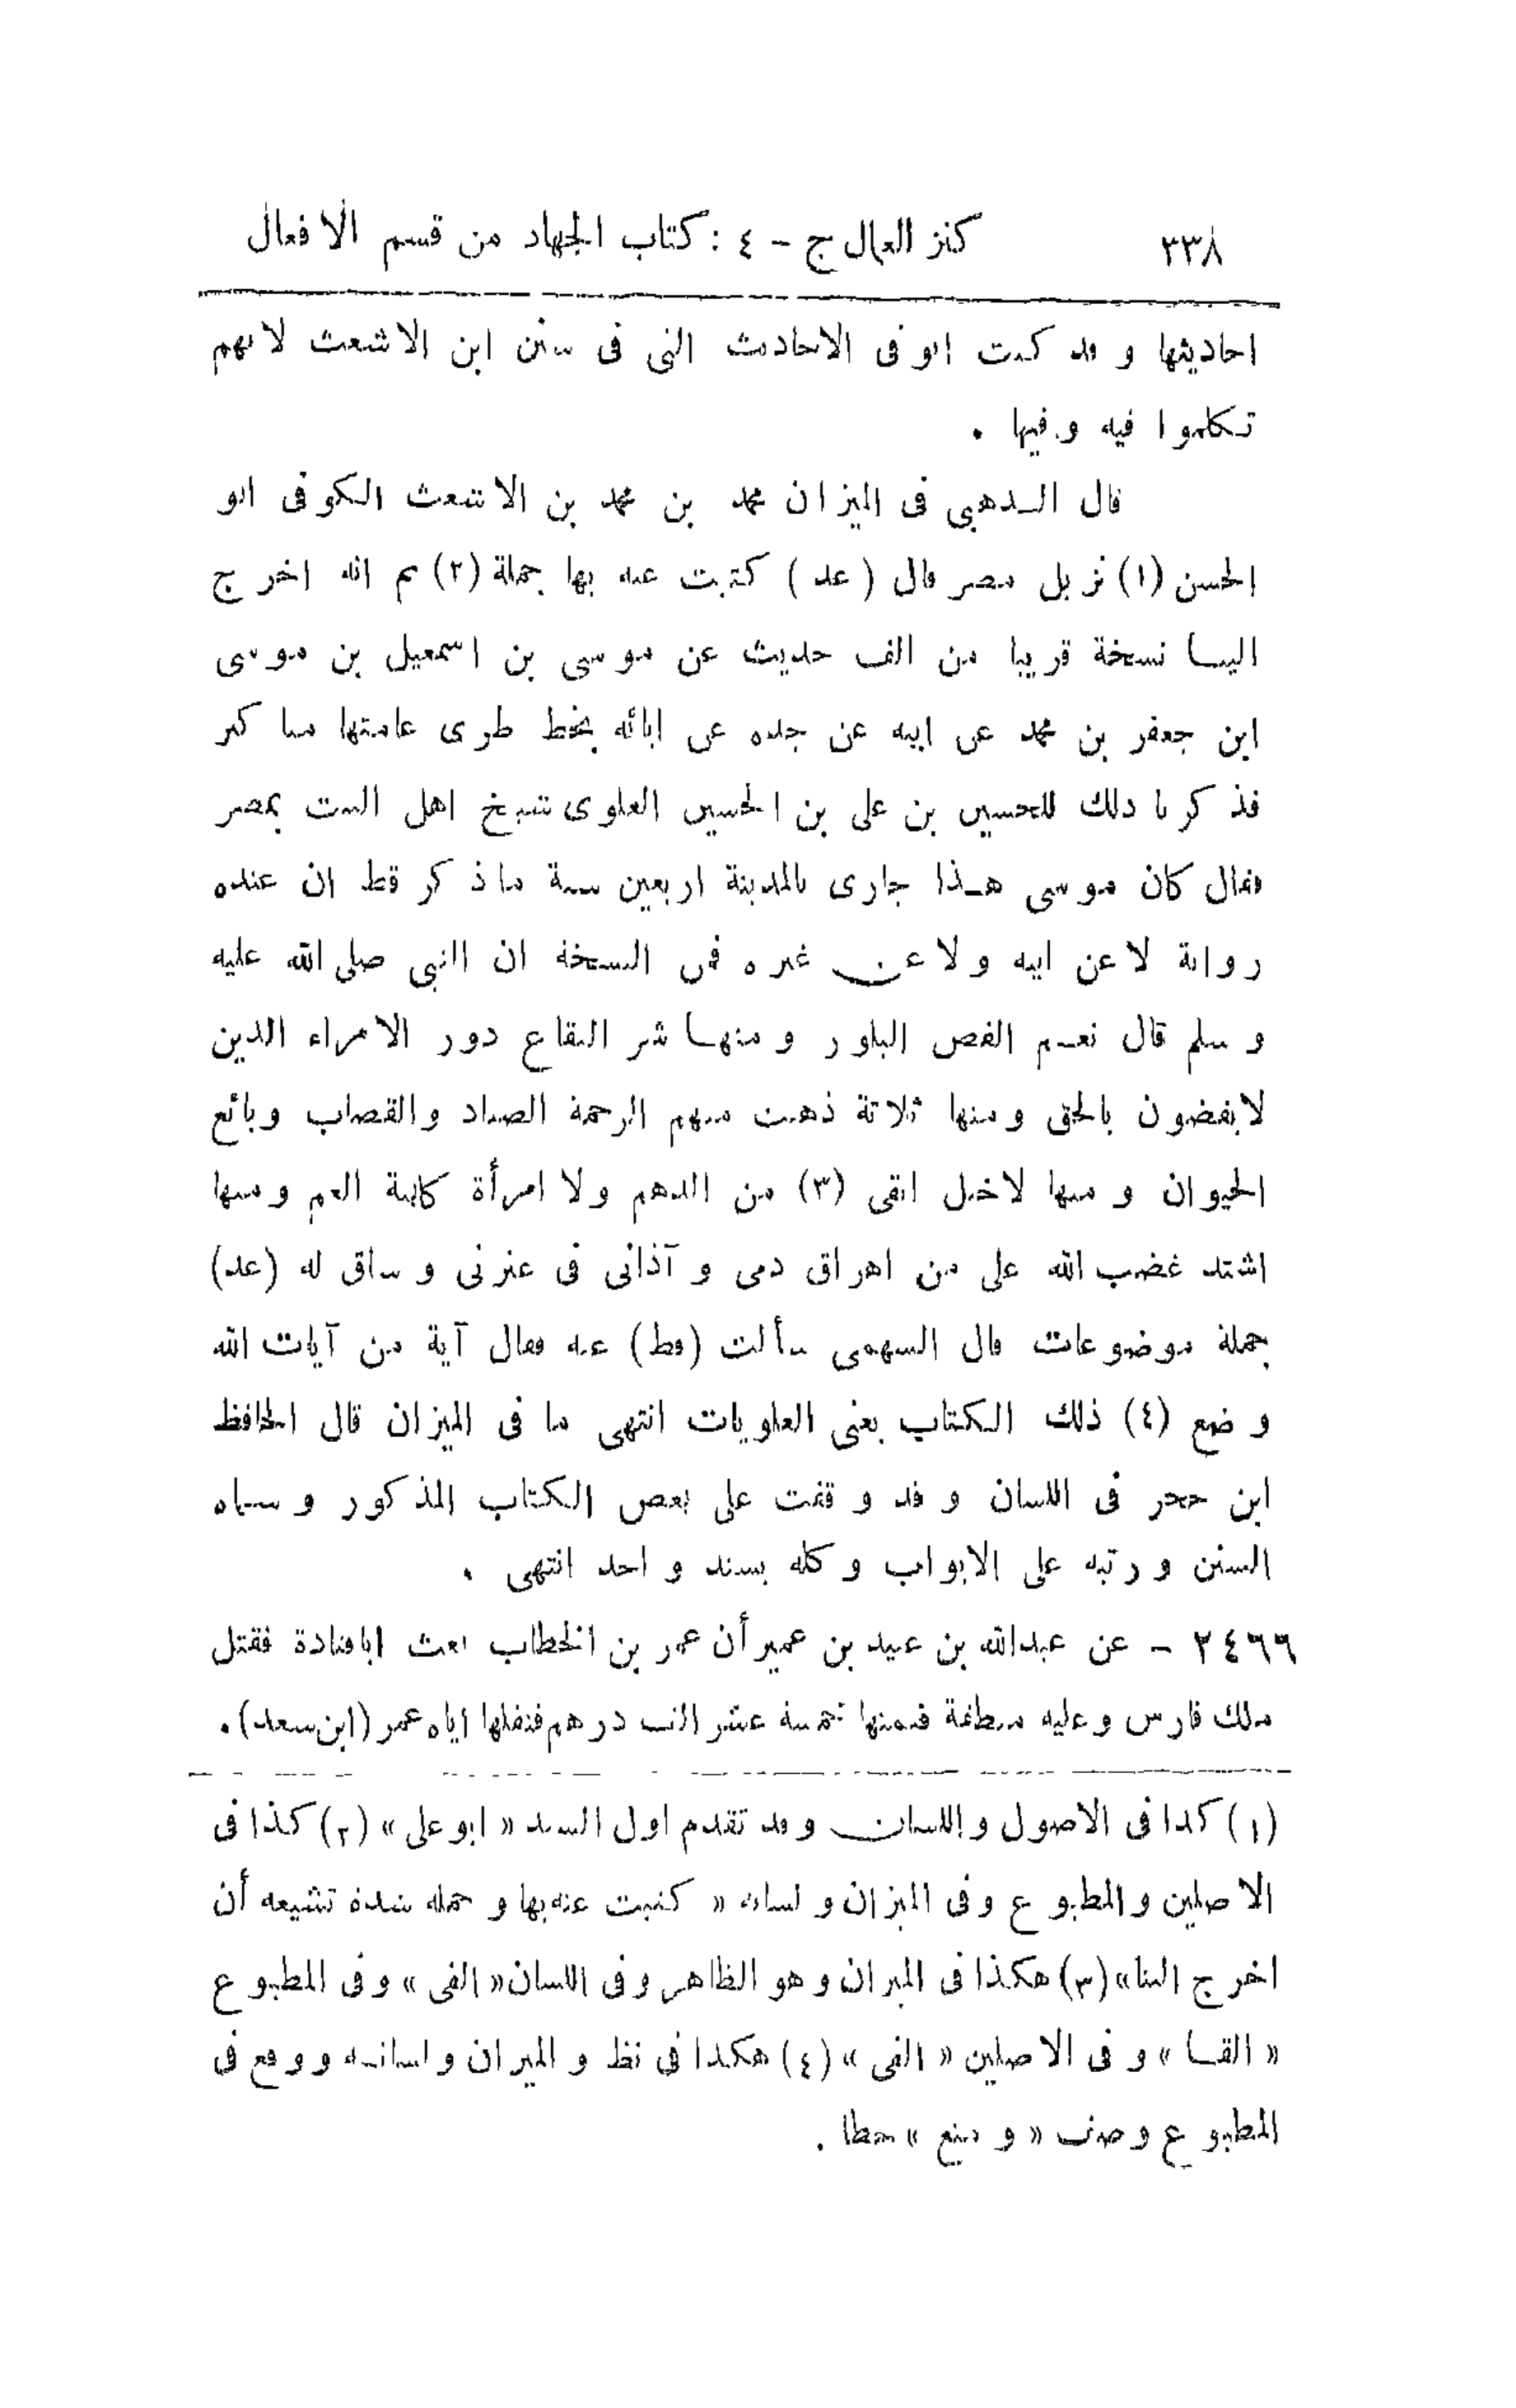 ٣٣٨ كنز العمال ج - ٤ : كتاب الجهاد من قسم الافعال
احاديثها و قد كنت اتو قى الاحاديث التى فى سنن ابن الاشعث لانهم
تكلموا فيه و فيها .
قال الذهبى فى الميزان محمد بن محمد بن الاشعث الكوفى ابو
الحسن (١) نزيل مصر قال (عد) كتبت عنه بها جملة (٢) ثم انه اخرج
الينا نسخة قريبا من الف حديث عن موسى بن اسمعيل بن موسى
ابن جعفر بن محمد عن ابيه عن جده عن ابائه بخط طرى عامتها مناكير
فذكرنا ذلك للحسين بن على بن الحسين العلوى شيخ اهل البيت بمصر
فقال كان موسى هذا جارى بالمدينة اربعين سنة ماذكر قط ان عنده
رواية لا عن ابيه ولا عن غيره فمن النسخة ان النبى صلى الله عليه
و سلم قال نعم الفص البلور و منها شر البقاع دور الامراء الذين
لايقضون بالحق ومنها ثلاثة ذهبت منهم الرحمة الصياد والقصاب وبائع
الحيوان و منها لاخيل ابقى (٣) من الدهم ولا امرأة كابنة العم ومنها
اشتد غضب الله على من اهراق دمى و آذانى فى عترتى و ساق له (عد)
جملة موضوعات قال السهمى سألت (قط) عنه فقال آية من آيات الله
و ضع (٤) ذلك الكتاب يعنى العلويات انتهى ما فى الميزان قال الحافظ
ابن حجر فى اللسان و قد و قفت على بعض الكتاب المذكور و سماه
السنن و رتبه على الابواب وكله بسند و احد انتهى .
٢٤٦٦ - عن عبدالله بن عبيد بن عمير أن عمر بن الخطاب بعث اباقتادة فقتل
ملك فارس وعليه منطقة قيمتها خمسة عشر الف درهم فنفلها اياه عمر (ابن سعد) .
(١) كذا فى الاصول و اللسان و قد تقدم اول السند « ابو على » (٢) كذا فى
الاصلين و المطبوع و فى الميزان و لسانه « كتبت عنه بها و حمله شدة تشيعه أن
اخرج الينا» (٣) هكذا فى الميزان و هو الظاهر و فى اللسان « الفى » و فى المطبوع
« القـا » و فى الاصلين « الفى » (٤) هكذا فى نظ و الميزان و لسانه و وقع فى
المطبوع و صف « و منع » خطا .